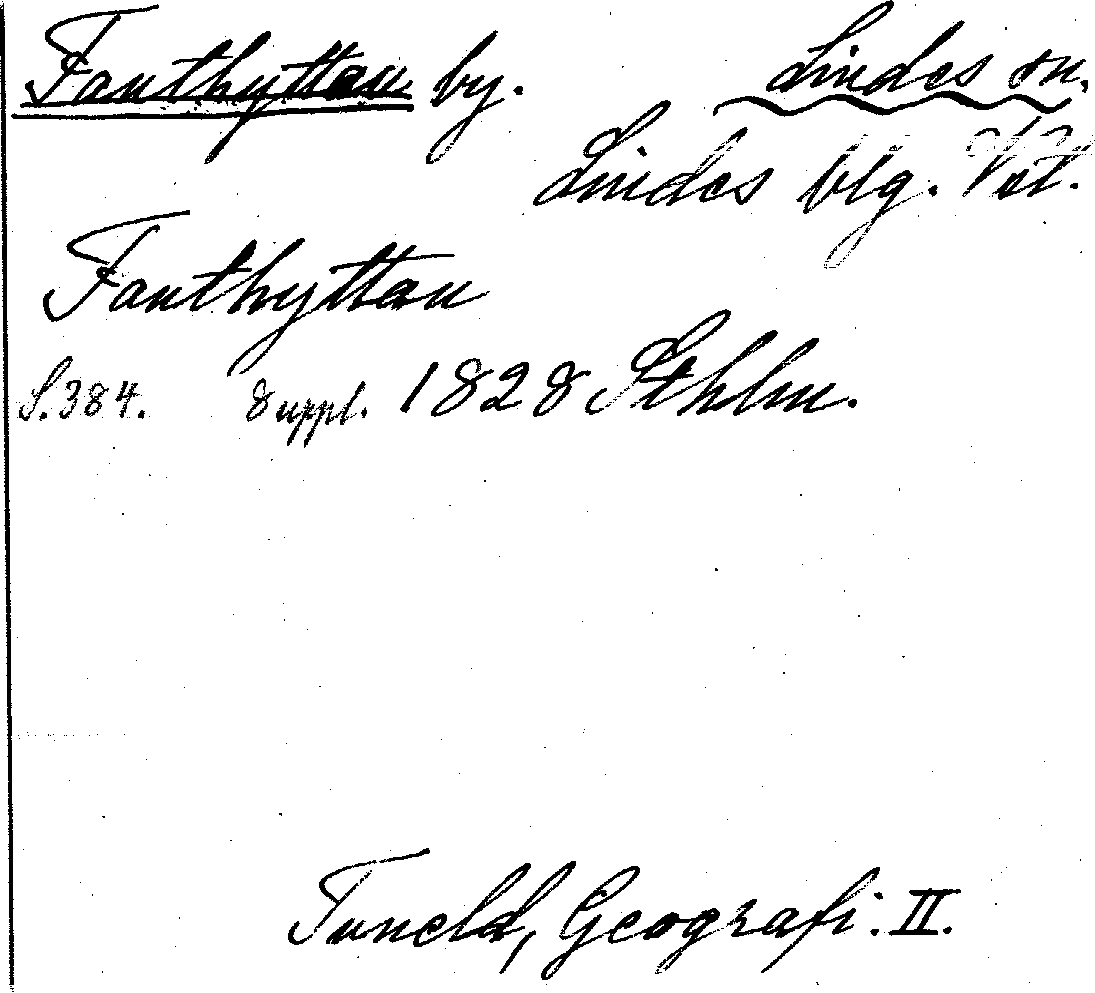 Fanthyttan by. Lindes sn.
Lindes blg. Vstl.
Fanthyttan
S. 384. 8 uppl. 1828 Sthlm.
Tuneld, Geografi. II.